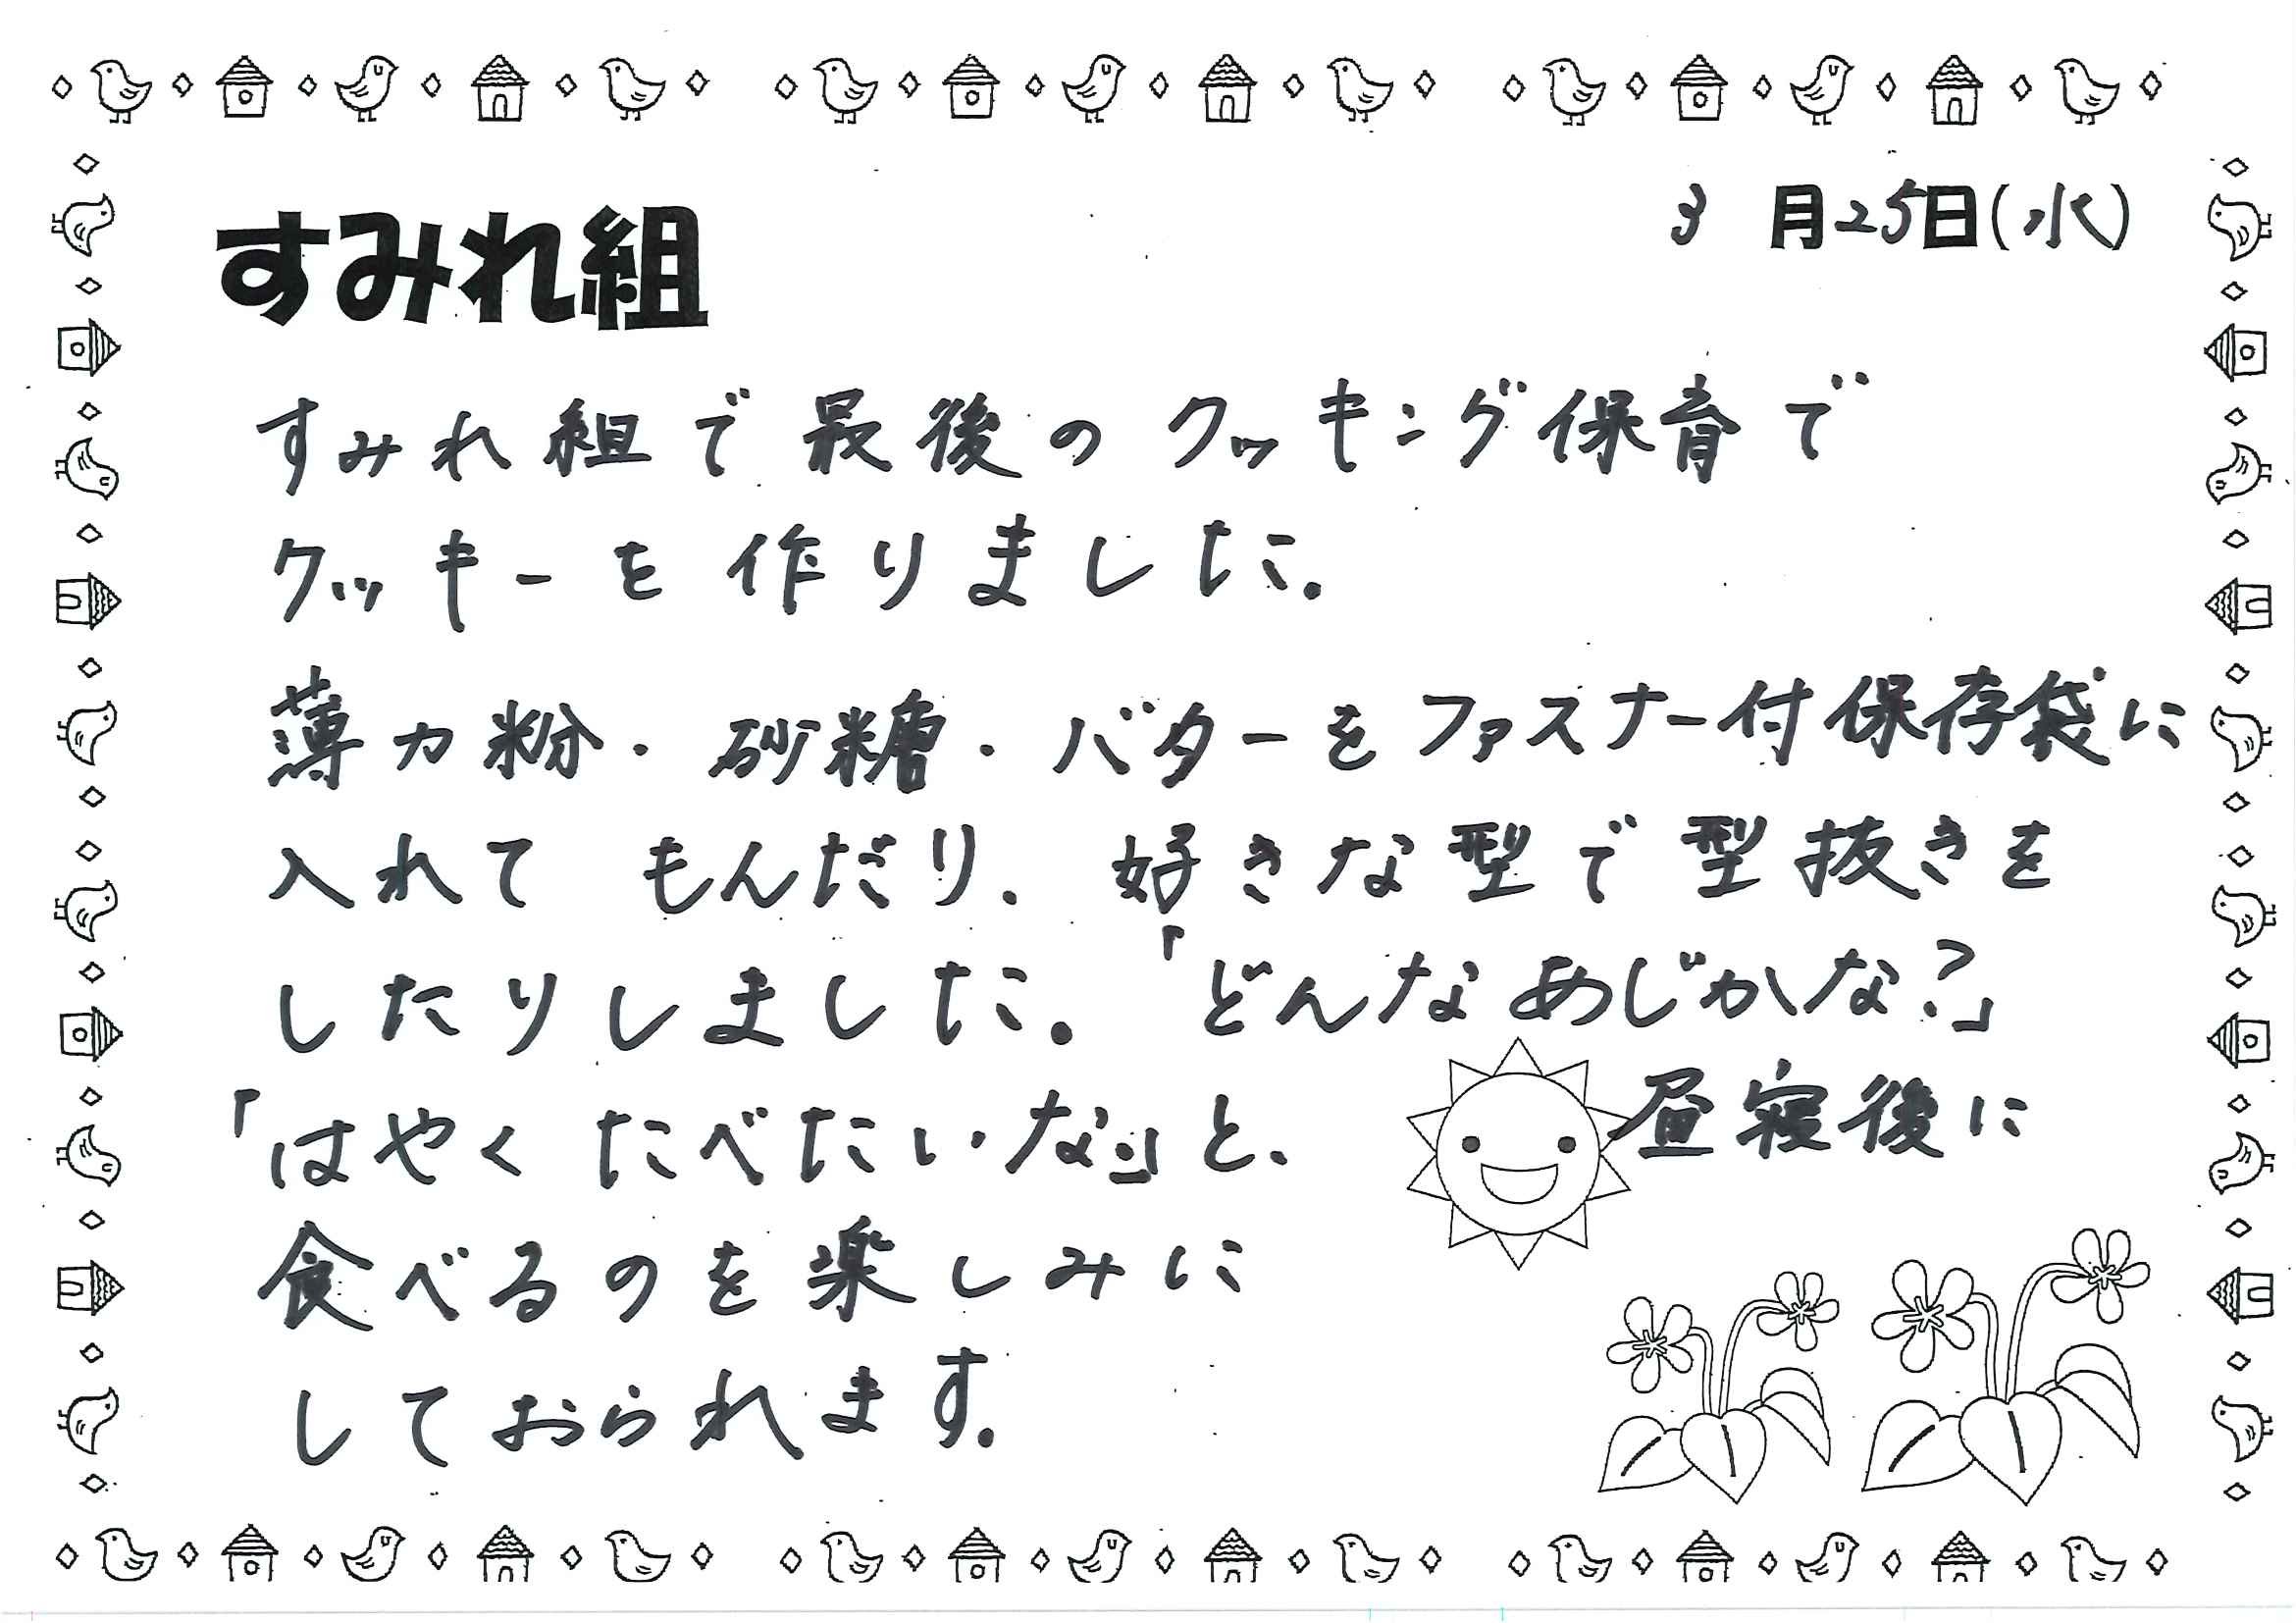 すみれ組
3月25日(水)
すみれ組で最後のクッキング保育で
クッキーを作りました。
薄力粉・砂糖・バターをファスナー付保存袋に
入れて もんだり、好きな型で型抜きを
したりしました。「どんなあじかな?」
「はやくたべたいな」と、昼寝後に
食べるのを楽しみに
しておられます。